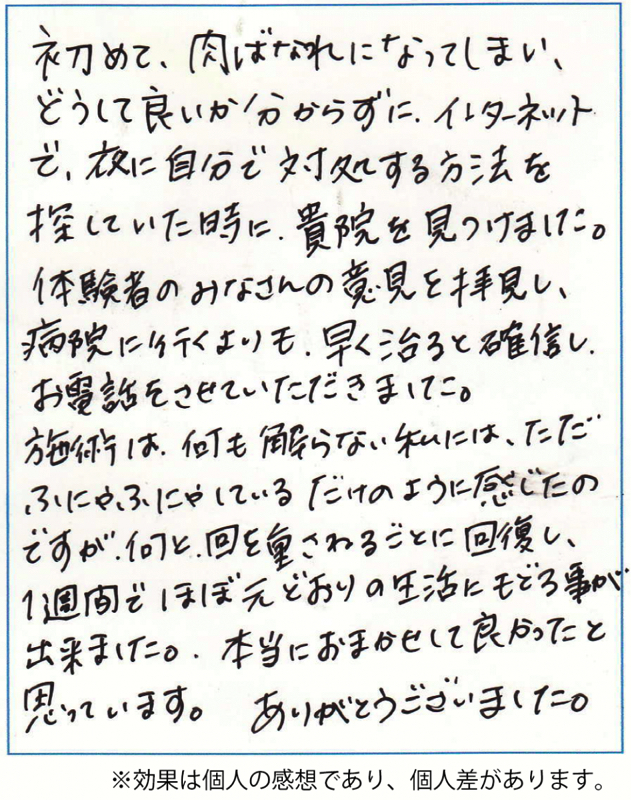 初めて、肉ばなれになってしまい、
どうして良いか分からずに、インターネット
で、夜に自分で対処する方法を
探していた時に、貴院を見つけました。
体験者のみなさんの意見を拝見し、
病院に行くよりも、早く治ると確信し、
お電話をさせていただきました。
施術は、何も解らない私には、ただ
ふにゃふにゃしているだけのように感じたの
ですが、何と、回を重されるごとに回復し、
1週間でほぼ元どおりの生活にもどる事が
出来ました。、本当におまかせして良かったと
思っています。 ありがとうございました。
※効果は個人の感想であり、個人差があります。